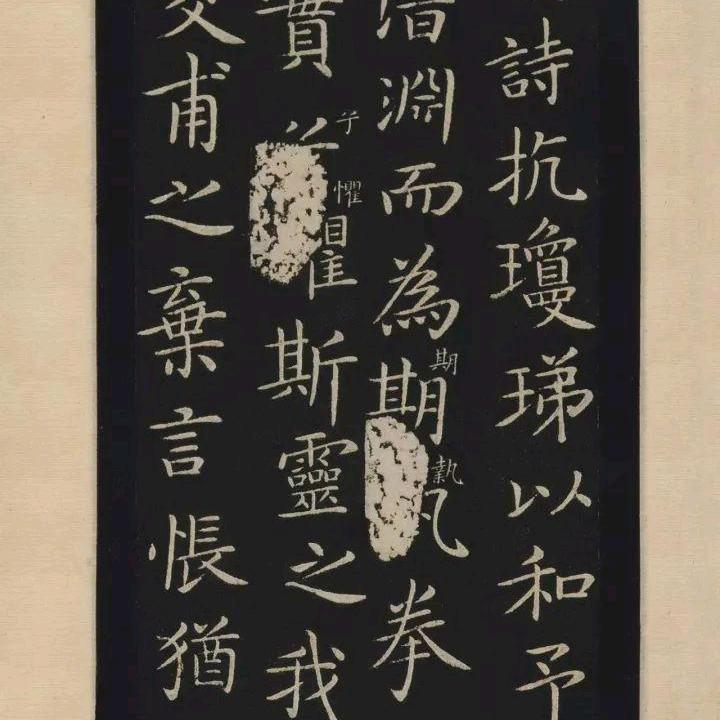 詩抗瓊珶以和予
潛淵而為期執拳
期
執
實兮懼斯靈之我
兮
懼
交甫之棄言悵猶